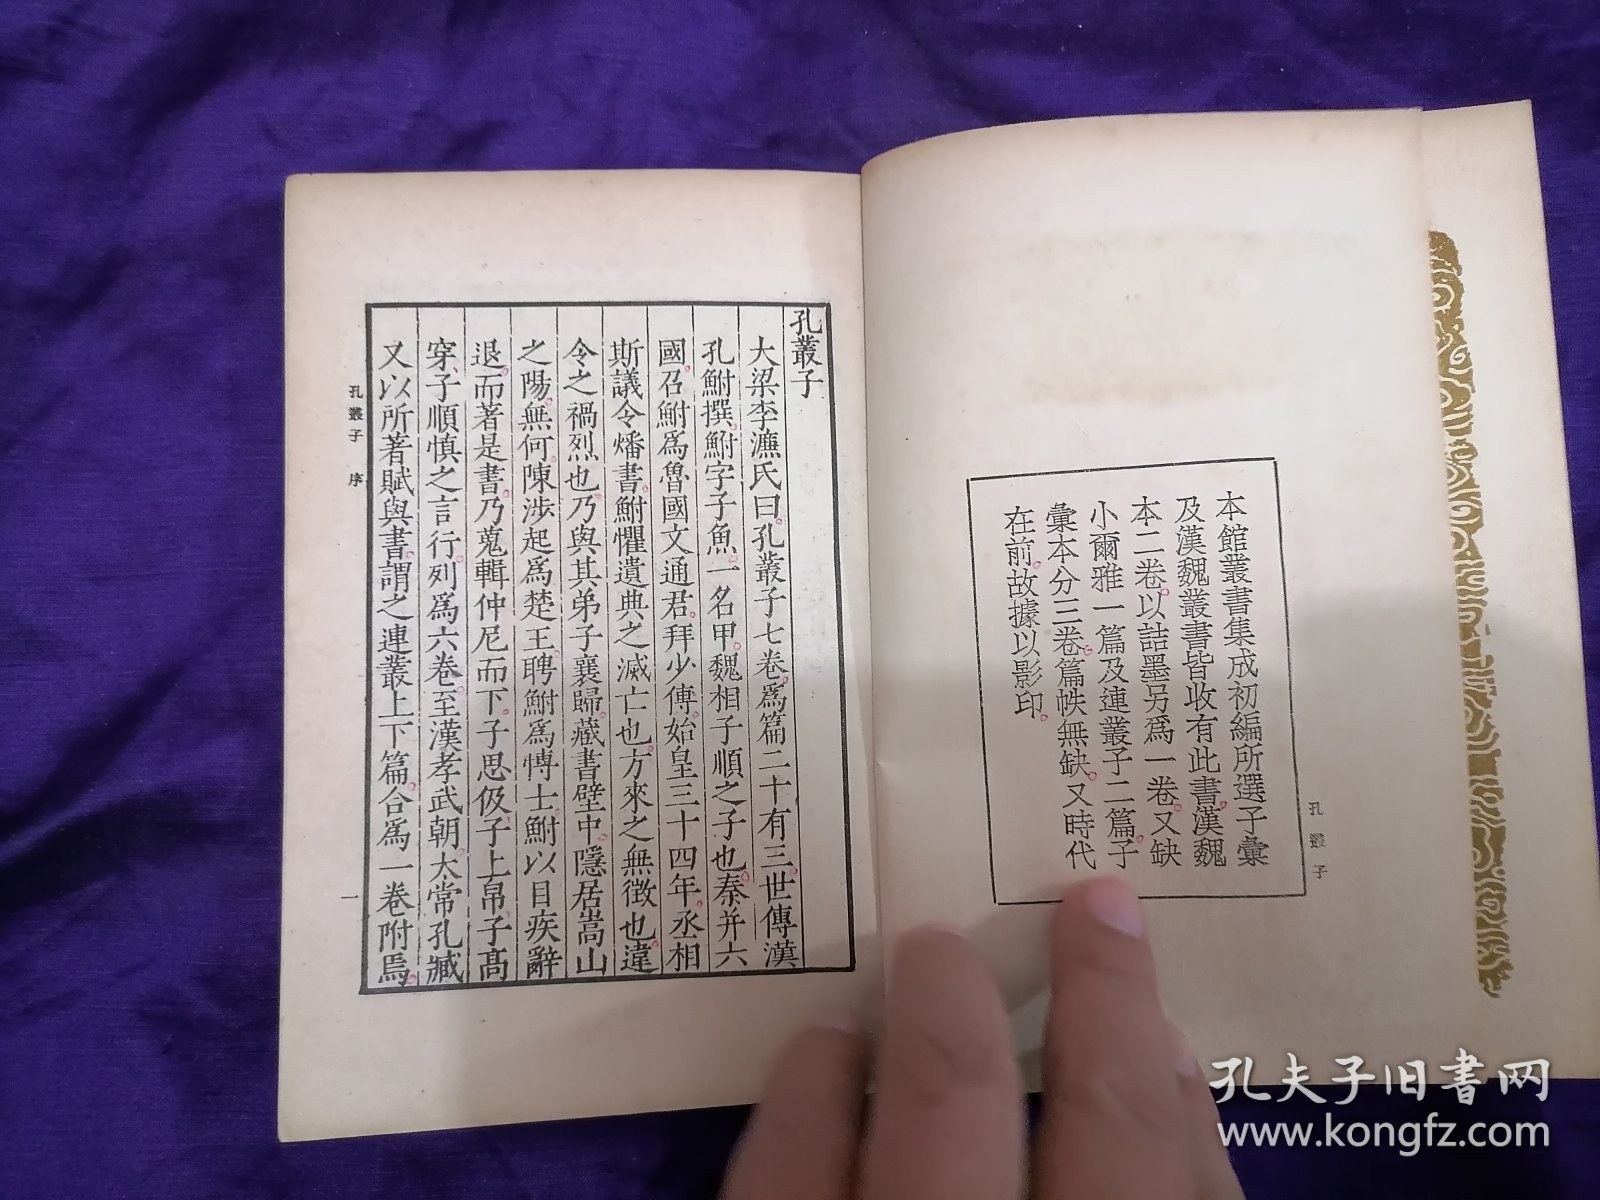 本館叢書集成初編所選子彙
及漢魏叢書皆收有此書。漢魏
本二卷。以詰墨另爲一卷。又缺
小爾雅一篇及連叢子二篇。子
彙本分三卷。篇帙無缺。又時代
在前。故據以影印。
孔叢子
孔叢子
大梁李㶆氏曰。孔叢子七卷。爲篇二十有三。世傳漢
孔鮒撰。鮒字子魚。一名甲。魏相子順之子也。秦并六
國。召鮒爲魯國文通君。拜少傅。始皇三十四年。丞相
斯議令燔書。鮒懼遺典之滅亡也。方來之無徵也。違
令之禍烈也。乃與其弟子襄歸。藏書壁中。隱居嵩山
之陽。無何。陳涉起爲楚王。聘鮒爲博士。鮒以目疾辭
退。而著是書。乃蒐輯仲尼而下。子思伋。子上帛。子高
穿。子順慎之言行。列爲六卷。至漢孝武朝。太常孔臧
又以所著賦與書。謂之連叢上下篇。合爲一卷附焉。
孔叢子 序
一
孔夫子旧书网
www.kongfz.com